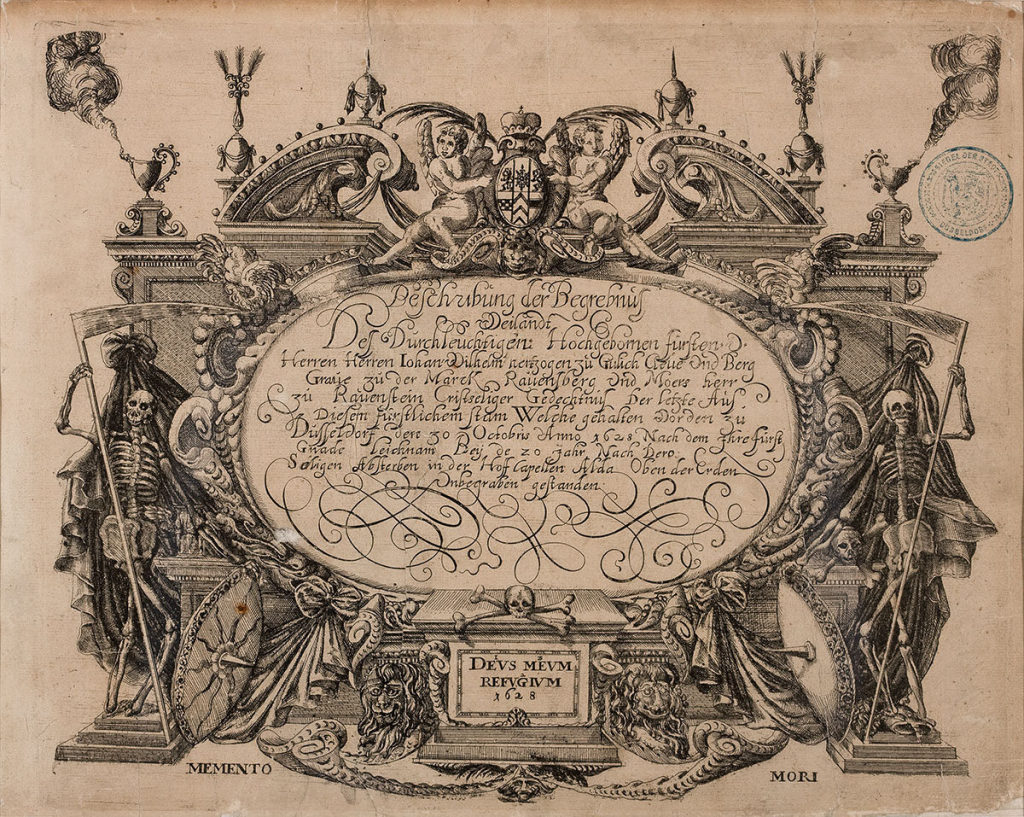 Beschribung der Begrebnus
Weilandt
Des Durchleuchtigen: Hochgebornen fursten. D.
Herren Herren Iohan Wilhelm hertzogen zu Gulich Cleve Und Berg
Grave zu der Marck Ravensberg Und Moers herr
zu Ravenstein Cristseliger Gedechtnus Der letzte Aus
Diesem fürstlichem stam Welche gehalten Worden zu
Düsseldorf den 30 Octobris Anno 1628 Nach dem Ihre fürst
Gnade Leichnam Bey de 20 Jahr Nach Dero
Seligen Absterben in der Hoff Capellen Alda Oben der Erden
Unbegraben gestanden.
DEUS MEUM
REFUGIUM
1628
MEMENTO MORI